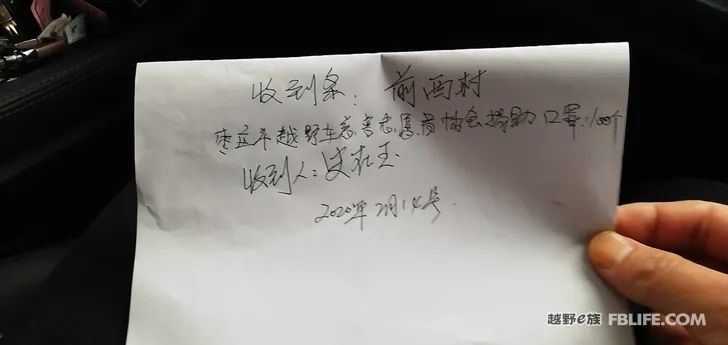 收到条：前西村
枣庄市越野车志愿者协会捐助口罩100个
收到人：史在玉
2020年2月14号.
越野e族 FBLIFE.COM